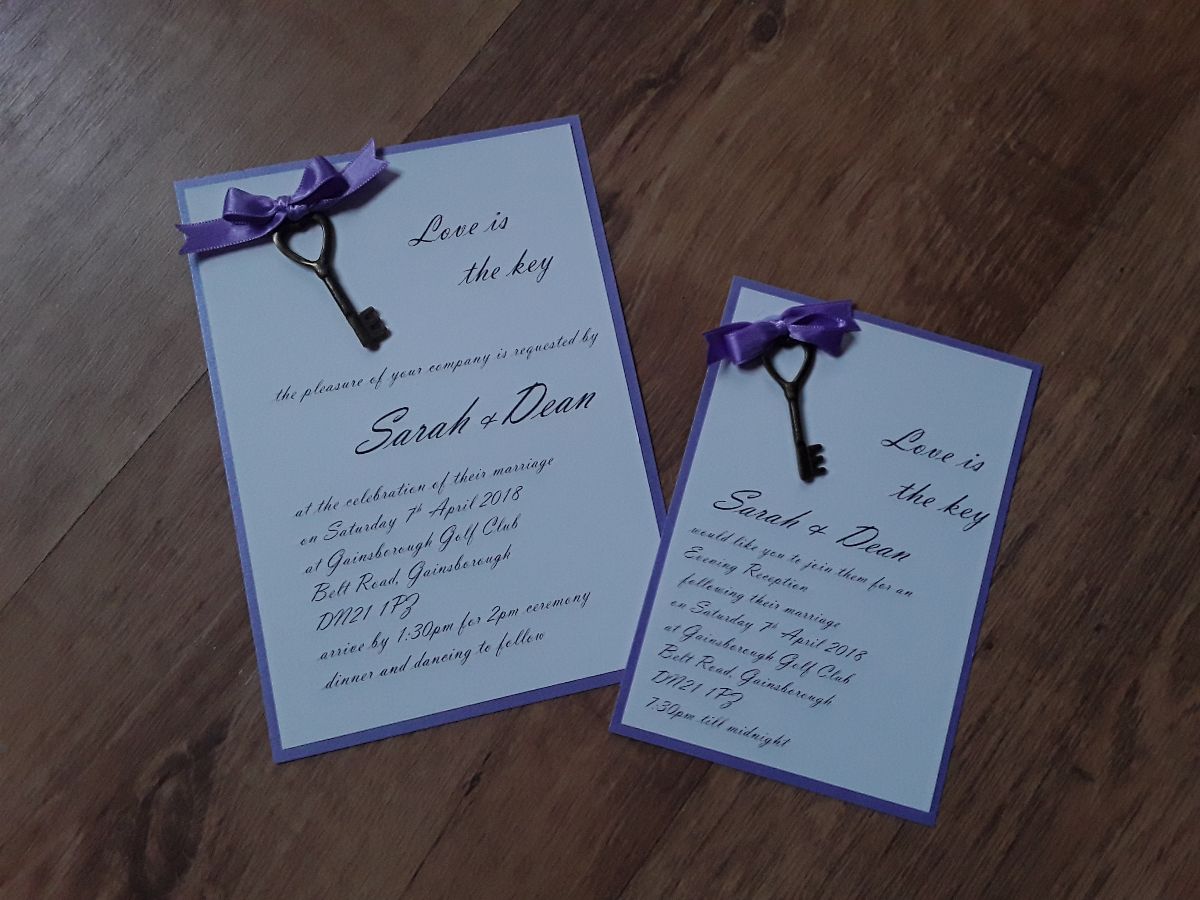 Love is
the key
the pleasure of your company is requested by
Sarah & Dean
at the celebration of their marriage
on Saturday 7th April 2018
at Gainsborough Golf Club
Belt Road, Gainsborough
DN21 1PZ
arrive by 1:30pm for 2pm ceremony
dinner and dancing to follow
Love is
the key
Sarah & Dean
would like you to join them for an
Evening Reception
following their marriage
on Saturday 7th April 2018
at Gainsborough Golf Club
Belt Road, Gainsborough
DN21 1PZ
7:30pm till midnight